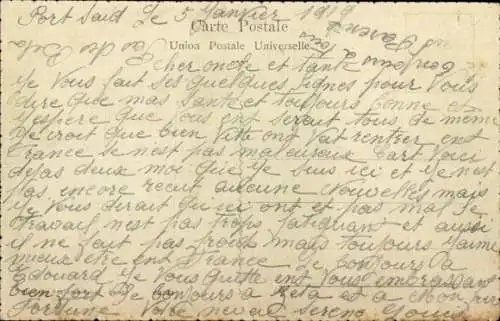 Port Said Le 5 Janvier 1919
Carte Postale
Union Postale Universelle
Cher oncle et tante
Je vous fait ses quelques lignes pour vous
dire que mas santé et toujours bonne et
J'espere que vous ent serait tous de même
Je croit que bien vite ont vat rentrer ent
France se nest pas maleureux cart voici
dejas deux moi que Je suis ici et Je nest
pas encore recut aucune nouvelles mais
Je vous dirat qu'ici ont et pas mal Le
travail n'est pas trops fatiguant et aussi
il ne fait pas froid mais toujours J'aime
mieux être ent France Le bonjours a
Edouard Je vous quitte ent vous embrassan
bien fort Le bonjours a et a mon
Fortune Votre neveu